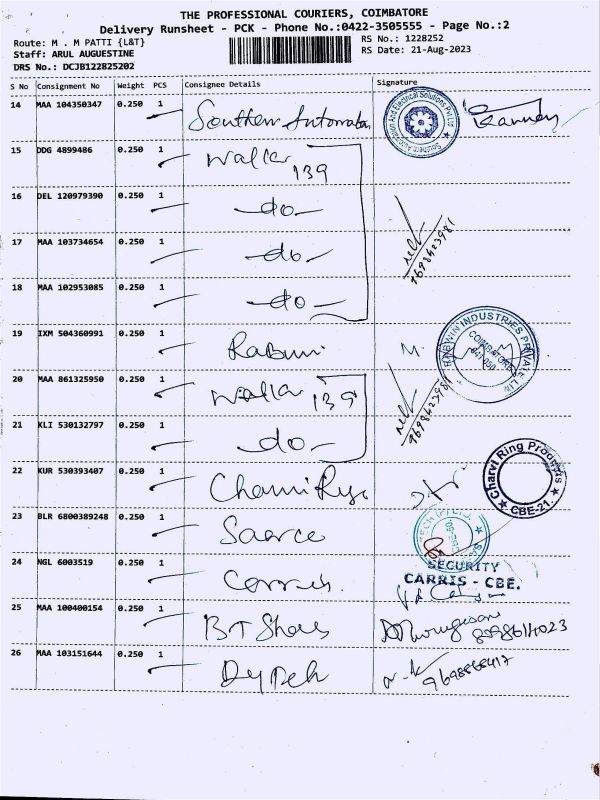 THE PROFESSIONAL COURIERS, COIMBATORE
Delivery Runsheet - PCK - Phone No.:0422-3505555 - Page No.:2
Route: M . M PATTI {L&T}
RS No.: 1228252
Staff: ARUL AUGUSTINE
RS Date: 21-Aug-2023
DRS No.: DCJB122825202
S No Consignment No Weight PCS Consignee Details Signature
14 MAA 104350347 0.250 1 Southern Automation
15 DDG 4899486 0.250 1 Walter 139
16 DEL 120979390 0.250 1 -do-
17 MAA 103734654 0.250 1 -do-
9698423981
18 MAA 102953085 0.250 1 -do-
19 IXM 504360991 0.250 1
RABWIN INDUSTRIES PRIVATE LIMITED
COIMBATORE
641 050
20 MAA 861325950 0.250 1 Walter 139
9698423981
21 KLI 530132797 0.250 1 -do-
22 KUR 530393407 0.250 1
Charvi Ring Products
CBE-21.
23 BLR 6800389248 0.250 1
24 NGL 6003519 0.250 1
SECURITY
CARRIS - CBE.
25 MAA 100400154 0.250 1 BT Shoes
26 MAA 103151644 0.250 1